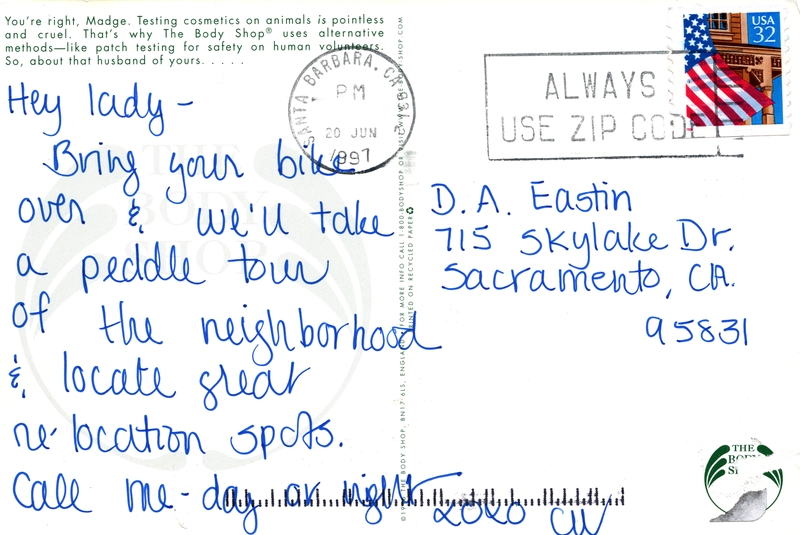 You're right, Madge. Testing cosmetics on animals is pointless
and cruel. That's why The Body Shop® uses alternative
methods—like patch testing for safety on human volunteers.
So, about that husband of yours. . . . .
Hey lady -
Bring your bike
over & we'll take
a peddle tour
of the neighborhood
& locate great
re-location spots.
Call me - day or night
2020 CW
SANTA BARBARA, CA 931
PM
20 JUN
1997
ALWAYS
USE ZIP CODE
USA
32
D. A. Eastin
715 Skylake Dr.
Sacramento, CA.
95831
THE BODY SHOP, BN17 6LS, ENGLAND FOR MORE INFO CALL 1-800-BODYSHOP OR
PRINTED ON RECYCLED PAPER
THE
BODY
SHOP
THE
BO
S